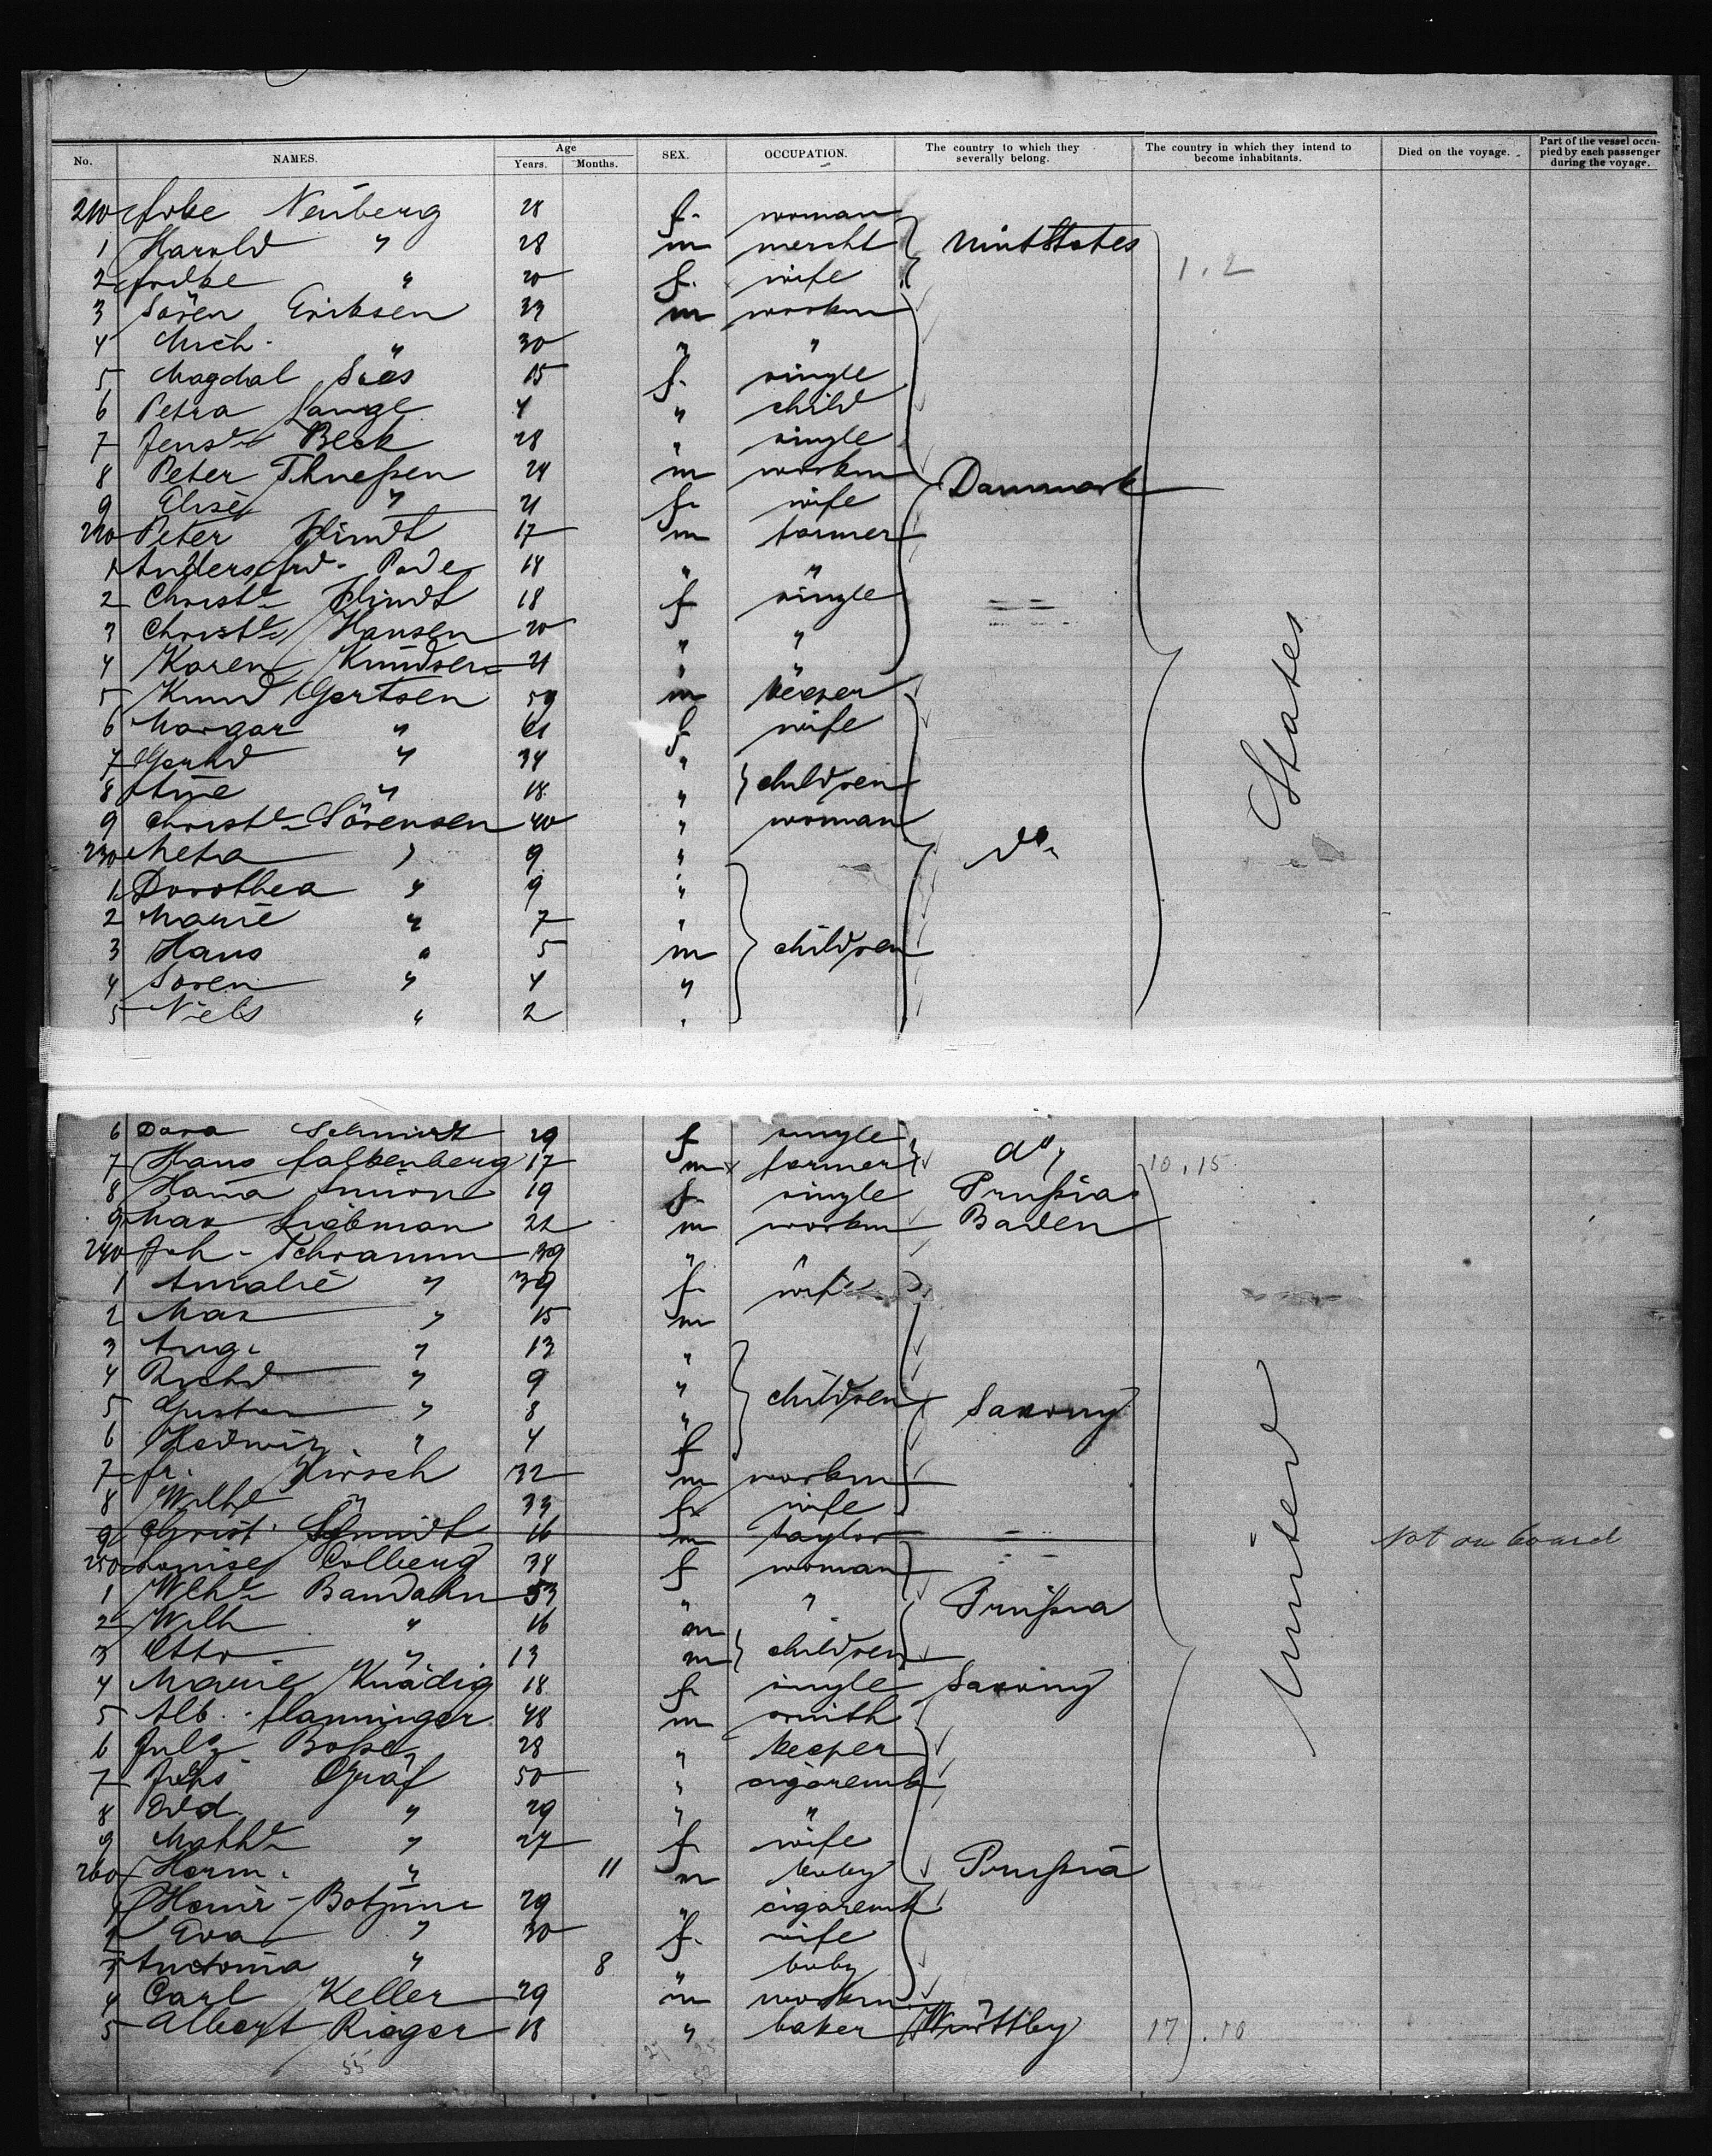 No. NAMES. Age Years. Months. SEX. OCCUPATION. The country to which they severally belong. The country in which they intend to become inhabitants. Died on the voyage. Part of the vessel occupied by each passenger during the voyage.
210 Neuberg 28 f. woman
1 Harold " 28 m mercht UnitStates 1.2
2 " 20 f. wife
3 Sören Eriksen 33 m workm
4 Mich. " 30 " "
5 Magdal 15 f. single
6 Petra Lange 4 " child
7 Beck 28 " single
8 Peter Thuessen 24 m workm Danmark
9 Elise " 21 f. wife
220 Peter Flindt 17 m farmer
1 Anders 14 " "
2 Christe Flindt 18 f single
3 Christe Hansen 20 " "
4 Karen Knudsen 21 " "
5 Knud Gertsen 59 m keeper
6 Margar " 61 f wife
7 Gerhd " 34 "
8 " 18 " children
9 Christe Sörensen 40 " woman
230 Meta " 9 " do.
1 Dorothea " 9 "
2 Marie " 7 "
3 Hans " 5 m children
4 Soren " 4 "
5 Niels " 2 "
6 Dora Schmidt 29 f single do,
7 Hans Falkenberg 17 m x farmer 10.15
8 Hana Simon 19 f. single Prussia
9 Max Liebman 22 m workm Baden
240 Joh. Schramm 39 " "
1 Amalie " 39 f. wife
2 Max " 15 m
3 Aug. " 13 "
4 Richd " 9 "
5 Gustav " 8 " children Saxony
6 Hedwig " 4 f
7 Fr. Hirsch 32 m workm
8 Wilhe " 33 f wife
9 Christ. Schmidt 16 m taylor Not on board
250 Louise Colberg 34 f woman
1 Wilhe Bandahn 53 " " Prussia
2 Wilh " 16 m
3 Otto " 13 m children
4 Marie Knädig 18 f. single Saxony
5 Alb. 48 m smith
6 Juls Bosse 28 " keeper
7 Gräf 50 " cigaremk
8 Edd. " 29 " "
9 Mathe " 27 f wife
260 Herm. " 11 m baby Prussia
1 Heinr. 29 " cigaremk
2 Eva " 30 f. wife
3 Antonia " 8 " baby
4 Carl Keller 29 m workm
5 Albert Rieger 18 " baker Württbg 17.10
55
United States